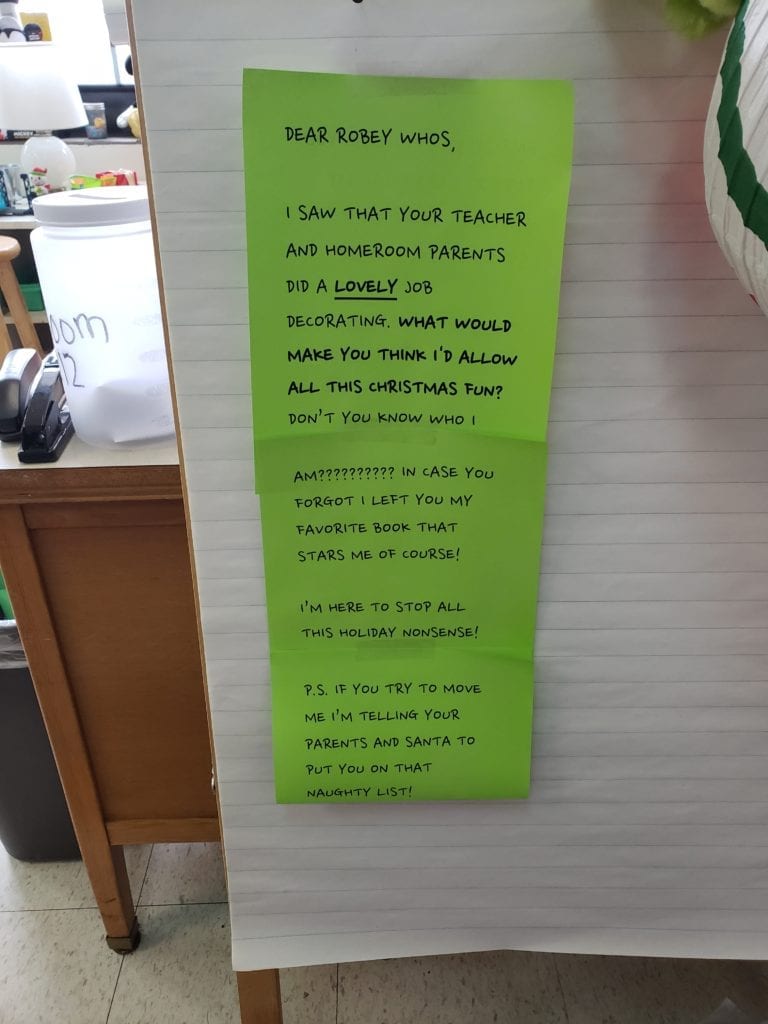 DEAR ROBEY WHOS,
I SAW THAT YOUR TEACHER
AND HOMEROOM PARENTS
DID A LOVELY JOB
DECORATING. WHAT WOULD
MAKE YOU THINK I'D ALLOW
ALL THIS CHRISTMAS FUN?
DON'T YOU KNOW WHO I
AM?????????? IN CASE YOU
FORGOT I LEFT YOU MY
FAVORITE BOOK THAT
STARS ME OF COURSE!
I'M HERE TO STOP ALL
THIS HOLIDAY NONSENSE!
P.S. IF YOU TRY TO MOVE
ME I'M TELLING YOUR
PARENTS AND SANTA TO
PUT YOU ON THAT
NAUGHTY LIST!
oom
12